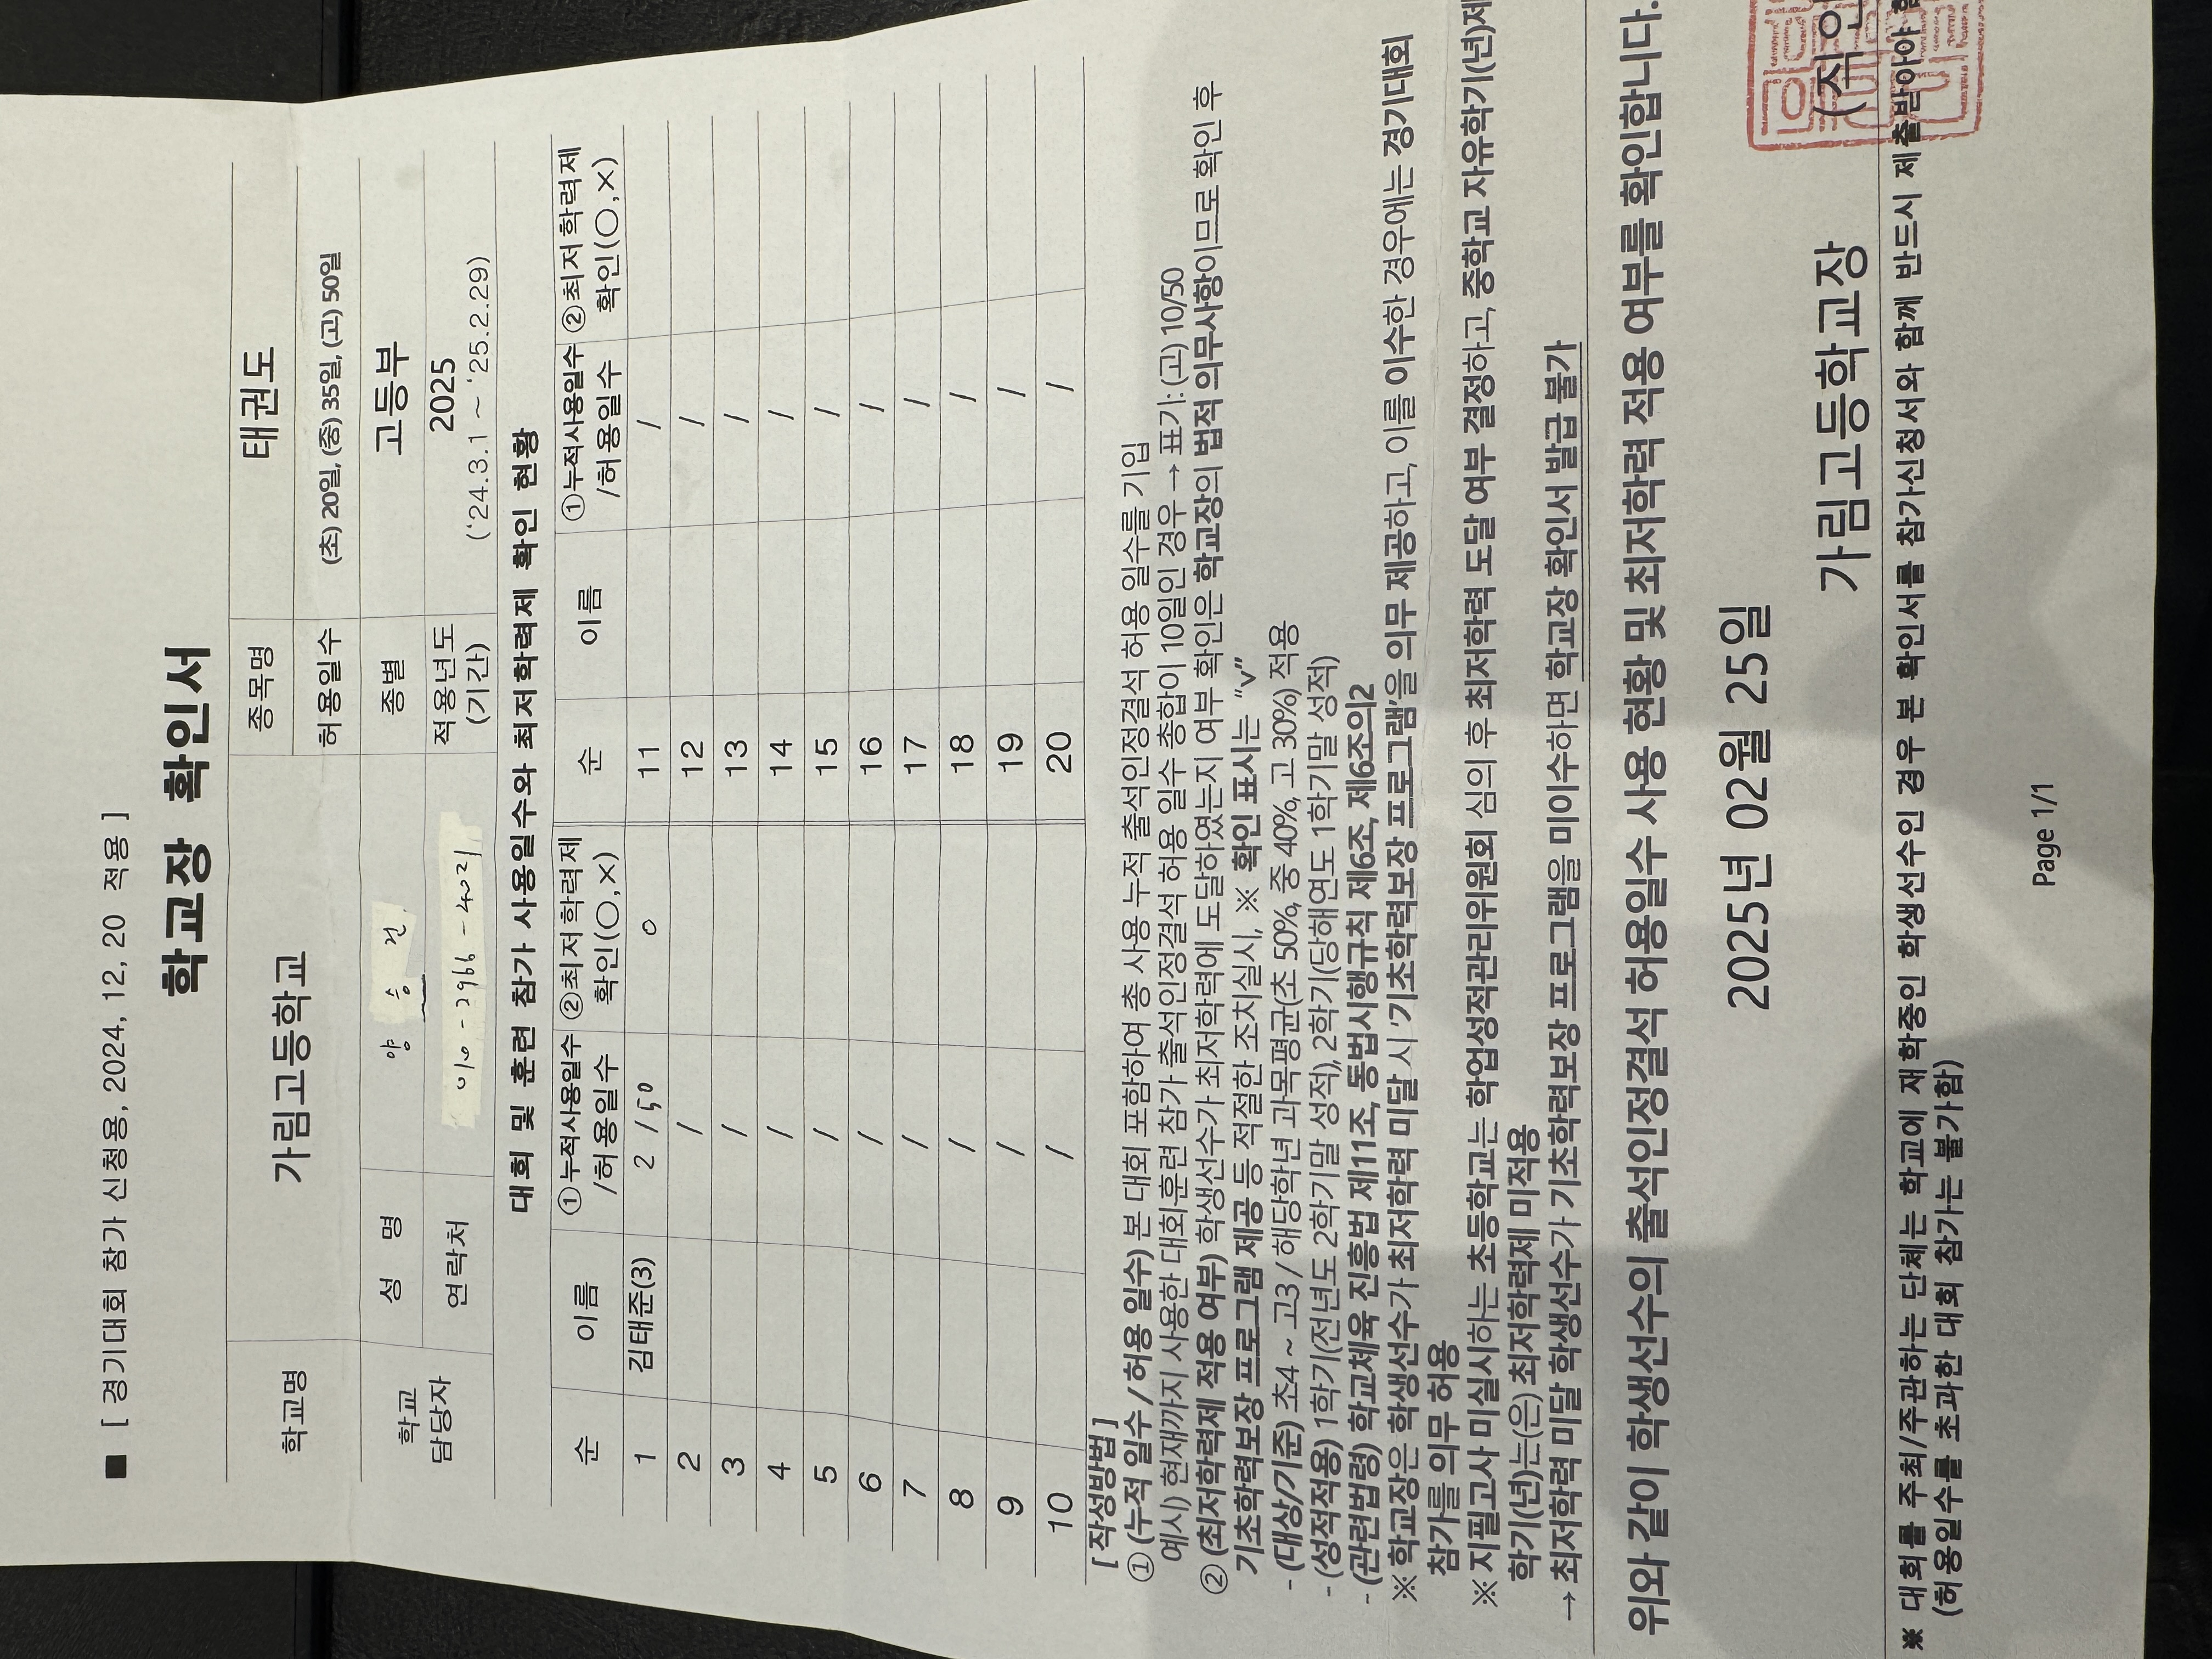 ■ [ 경기대회 참가 신청용, 2024, 12, 20 적용 ]
학교장 확인서
학교명 가림고등학교 종목명 태권도
허용일수 (초) 20일, (중) 35일, (고) 50일
학교 담당자 성 명 양 승 건 종별 고등부
연락처 010-2966-4021 적용년도 (기간) 2025 ('24.3.1 ~ '25.2.29)
대회 및 훈련 참가 사용일수와 최저학력제 확인 현황
순 이름 ①누적사용일수 /허용일수 ②최저학력제 확인(○,×) 순 이름 ①누적사용일수 /허용일수 ②최저학력제 확인(○,×)
1 김태준(3) 2 / 50 ○ 11 /
2 / 12 /
3 / 13 /
4 / 14 /
5 / 15 /
6 / 16 /
7 / 17 /
8 / 18 /
9 / 19 /
10 / 20 /
[ 작성방법 ]
① (누적 일수 / 허용 일수) 본 대회 포함하여 총 사용 누적 출석인정결석 허용 일수를 기입
예시) 현재까지 사용한 대회훈련 참가 출석인정결석 허용 일수 총합이 10일인 경우 → 표기: (고) 10/50
② (최저학력제 적용 여부) 학생선수가 최저학력에 도달하였는지 여부 확인은 학교장의 법적 의무사항이므로 확인 후
기초학력보장 프로그램 제공 등 적절한 조치실시, ※ 확인 표시는 "v"
- (대상/기준) 초4 ~ 고3 / 해당학년 과목평균(초 50%, 중 40%, 고 30%) 적용
- (성적적용) 1학기(전년도 2학기말 성적), 2학기(당해연도 1학기말 성적)
- (관련법령) 학교체육 진흥법 제11조, 동법시행규칙 제6조, 제6조의2
※ 학교장은 학생선수가 최저학력 미달 시 '기초학력보장 프로그램'을 의무 제공하고, 이를 이수한 경우에는 경기대회
참가를 의무 허용
※ 지필고사 미실시하는 초등학교는 학업성적관리위원회 심의 후 최저학력 도달 여부 결정하고, 중학교 자유학기(년)제
학기(년)는(은) 최저학력제 미적용
→ 최저학력 미달 학생선수가 기초학력보장 프로그램을 미이수하면 학교장 확인서 발급 불가
위와 같이 학생선수의 출석인정결석 허용일수 사용 현황 및 최저학력 적용 여부를 확인합니다.
2025년 02월 25일
가림고등학교장 (직인
※ 대회를 주최/주관하는 단체는 학교에 재학중인 학생선수인 경우 본 확인서를 참가신청서와 함께 반드시 제출받아야
(허용일수를 초과한 대회 참가는 불가함)
Page 1/1